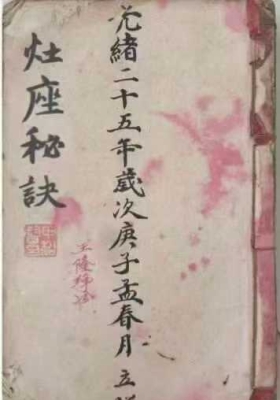 光緒二十五年歲次庚子孟春月立
灶座秘訣
王隆